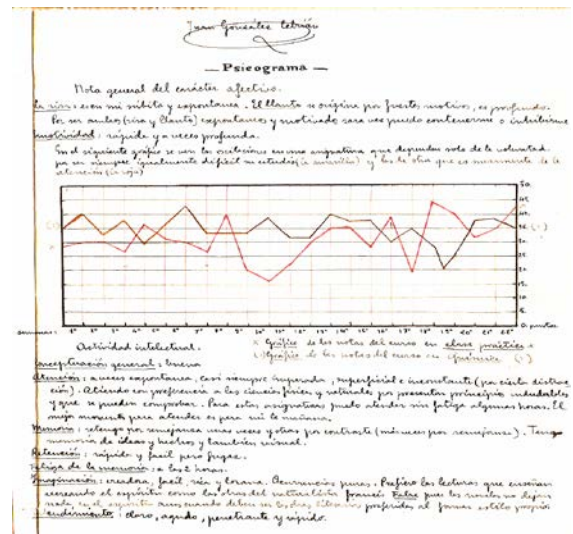 Juan González Cebrián
— Psicograma —
Nota general del carácter afectivo.
La risa: es en mi súbita y expontanea. El llanto se origina por fuertes motivos, es profundo.
Por ser ambos (risa y llanto) expontaneos y motivado rara vez puedo contenerme o inhibirme
Emotividad: rápida y a veces profunda.
En el siguiente gráfico se ven las oscilaciones en una asignatura que dependen solo de la voluntad
por ser siempre igualmente difícil su estudio (la amarilla) y las de otra que es meramente de la
atención (la roja)
50
45
40
35 (1)
30
25
20
15
10
5
0 puntos
semanas: 1ª 2ª 3ª 4ª 5ª 6ª 7ª 8ª 9ª 10ª 11ª 12ª 13ª 14ª 15ª 16ª 17ª 18ª 19ª 20ª 21ª 22ª
Actividad intelectual.
x Gráfico de las notas del curso en clase práctica x
(1) Gráfico de las notas del curso en Química (1)
Conceptuación general: buena
Atención: a veces expontanea, casi siempre imperada, superficial e inconstante (por cierta distrac-
ción). Atiendo con preferencia a las ciencias físicas y naturales por presentar principios indudables
y que se pueden comprobar. Para estas asignaturas puedo atender sin fatiga algunas horas. El
mejor momento para atender es para mi la mañana.
Memoria: retengo por semejanza unas veces y otras por contraste (más veces por semejanza). Tengo
memoria de ideas y hechos y tambien visual.
Retención: rápida y facil pero fugaz.
Fatiga de la memoria: a las 2 horas.
Imaginación: creadora, facil, rica y lozana. Ocurrencias pocas. Prefiero las lecturas que enseñan
recreando el espíritu como las obras del naturalista francés Fabre pues las novelas no dejan
nada en el espíritu aun cuando deben ser leidas
preferidas al formar estilo propio
Entendimiento: claro, agudo, penetrante y rápido.